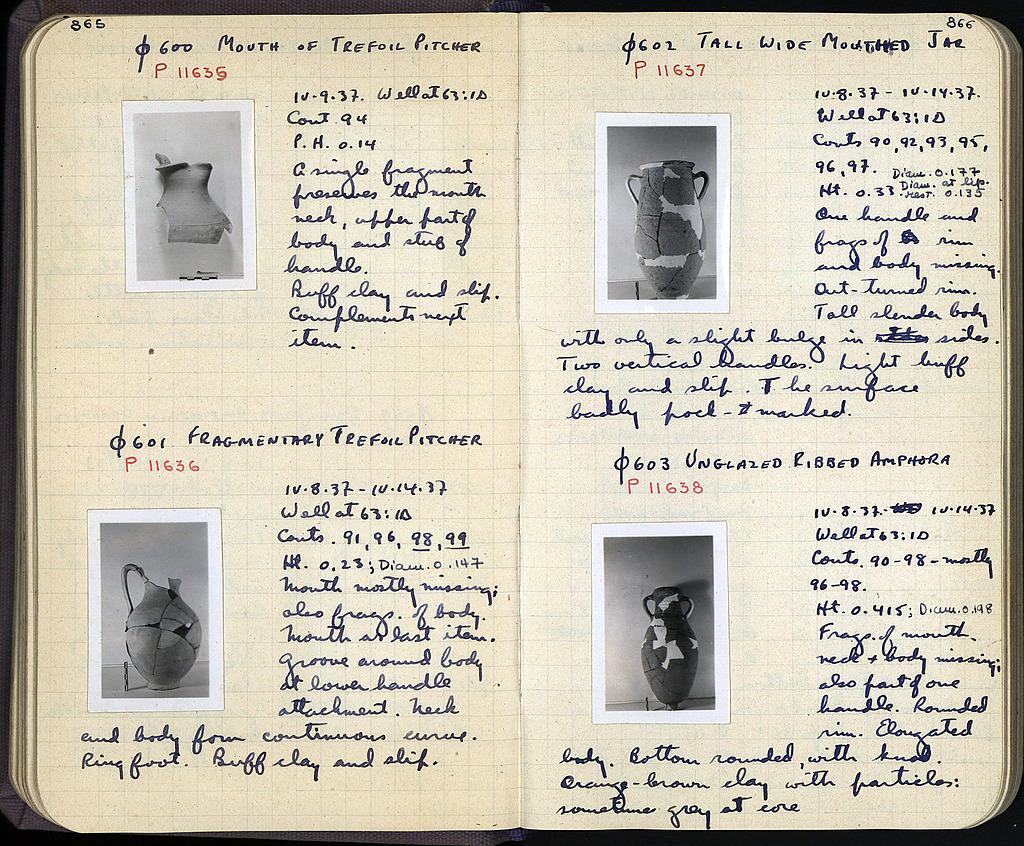 865
φ600 MOUTH OF TREFOIL PITCHER
P 11635
IV.9.37. Well at 63:ΙΔ
Cont 94
P.H. 0.14
A single fragment
preserves the mouth
neck, upper part of
body and stub of
handle.
Buff clay and slip.
Complements next
item.
φ601 FRAGMENTARY TREFOIL PITCHER
P 11636
IV.8.37 - IV.14.37
Well at 63:ΙΔ
Conts. 91, 96, 98, 99
Ht. 0.23; Diam. 0.147
Mouth mostly missing;
also frags. of body.
Mouth as last item.
Groove around body
at lower handle
attachment. Neck
and body form continuous curve.
Ring foot. Buff clay and slip.
866
φ602 TALL WIDE MOUTHED JAR
P 11637
IV.8.37 - IV.14.37.
Well at 63:ΙΔ
Conts 90, 92, 93, 95,
96, 97. Diam. 0.177
Ht. 0.33 Diam. at lip.
rest. 0.135
One handle and
frags of rim
and body missing.
Out-turned rim.
Tall slender body
with only a slight bulge in sides.
Two vertical handles. Light buff
clay and slip. The surface
badly pock-marked.
φ603 UNGLAZED RIBBED AMPHORA
P 11638
IV.8.37- IV.14.37
Well at 63:ΙΔ
Conts. 90-98 - mostly
96-98.
Ht. 0.415; Diam. 0.198
Frags. of mouth,
neck + body missing;
also part of one
handle. Rounded
rim. Elongated
body. Bottom rounded, with knob.
Orange-brown clay with particles:
sometime grey at core